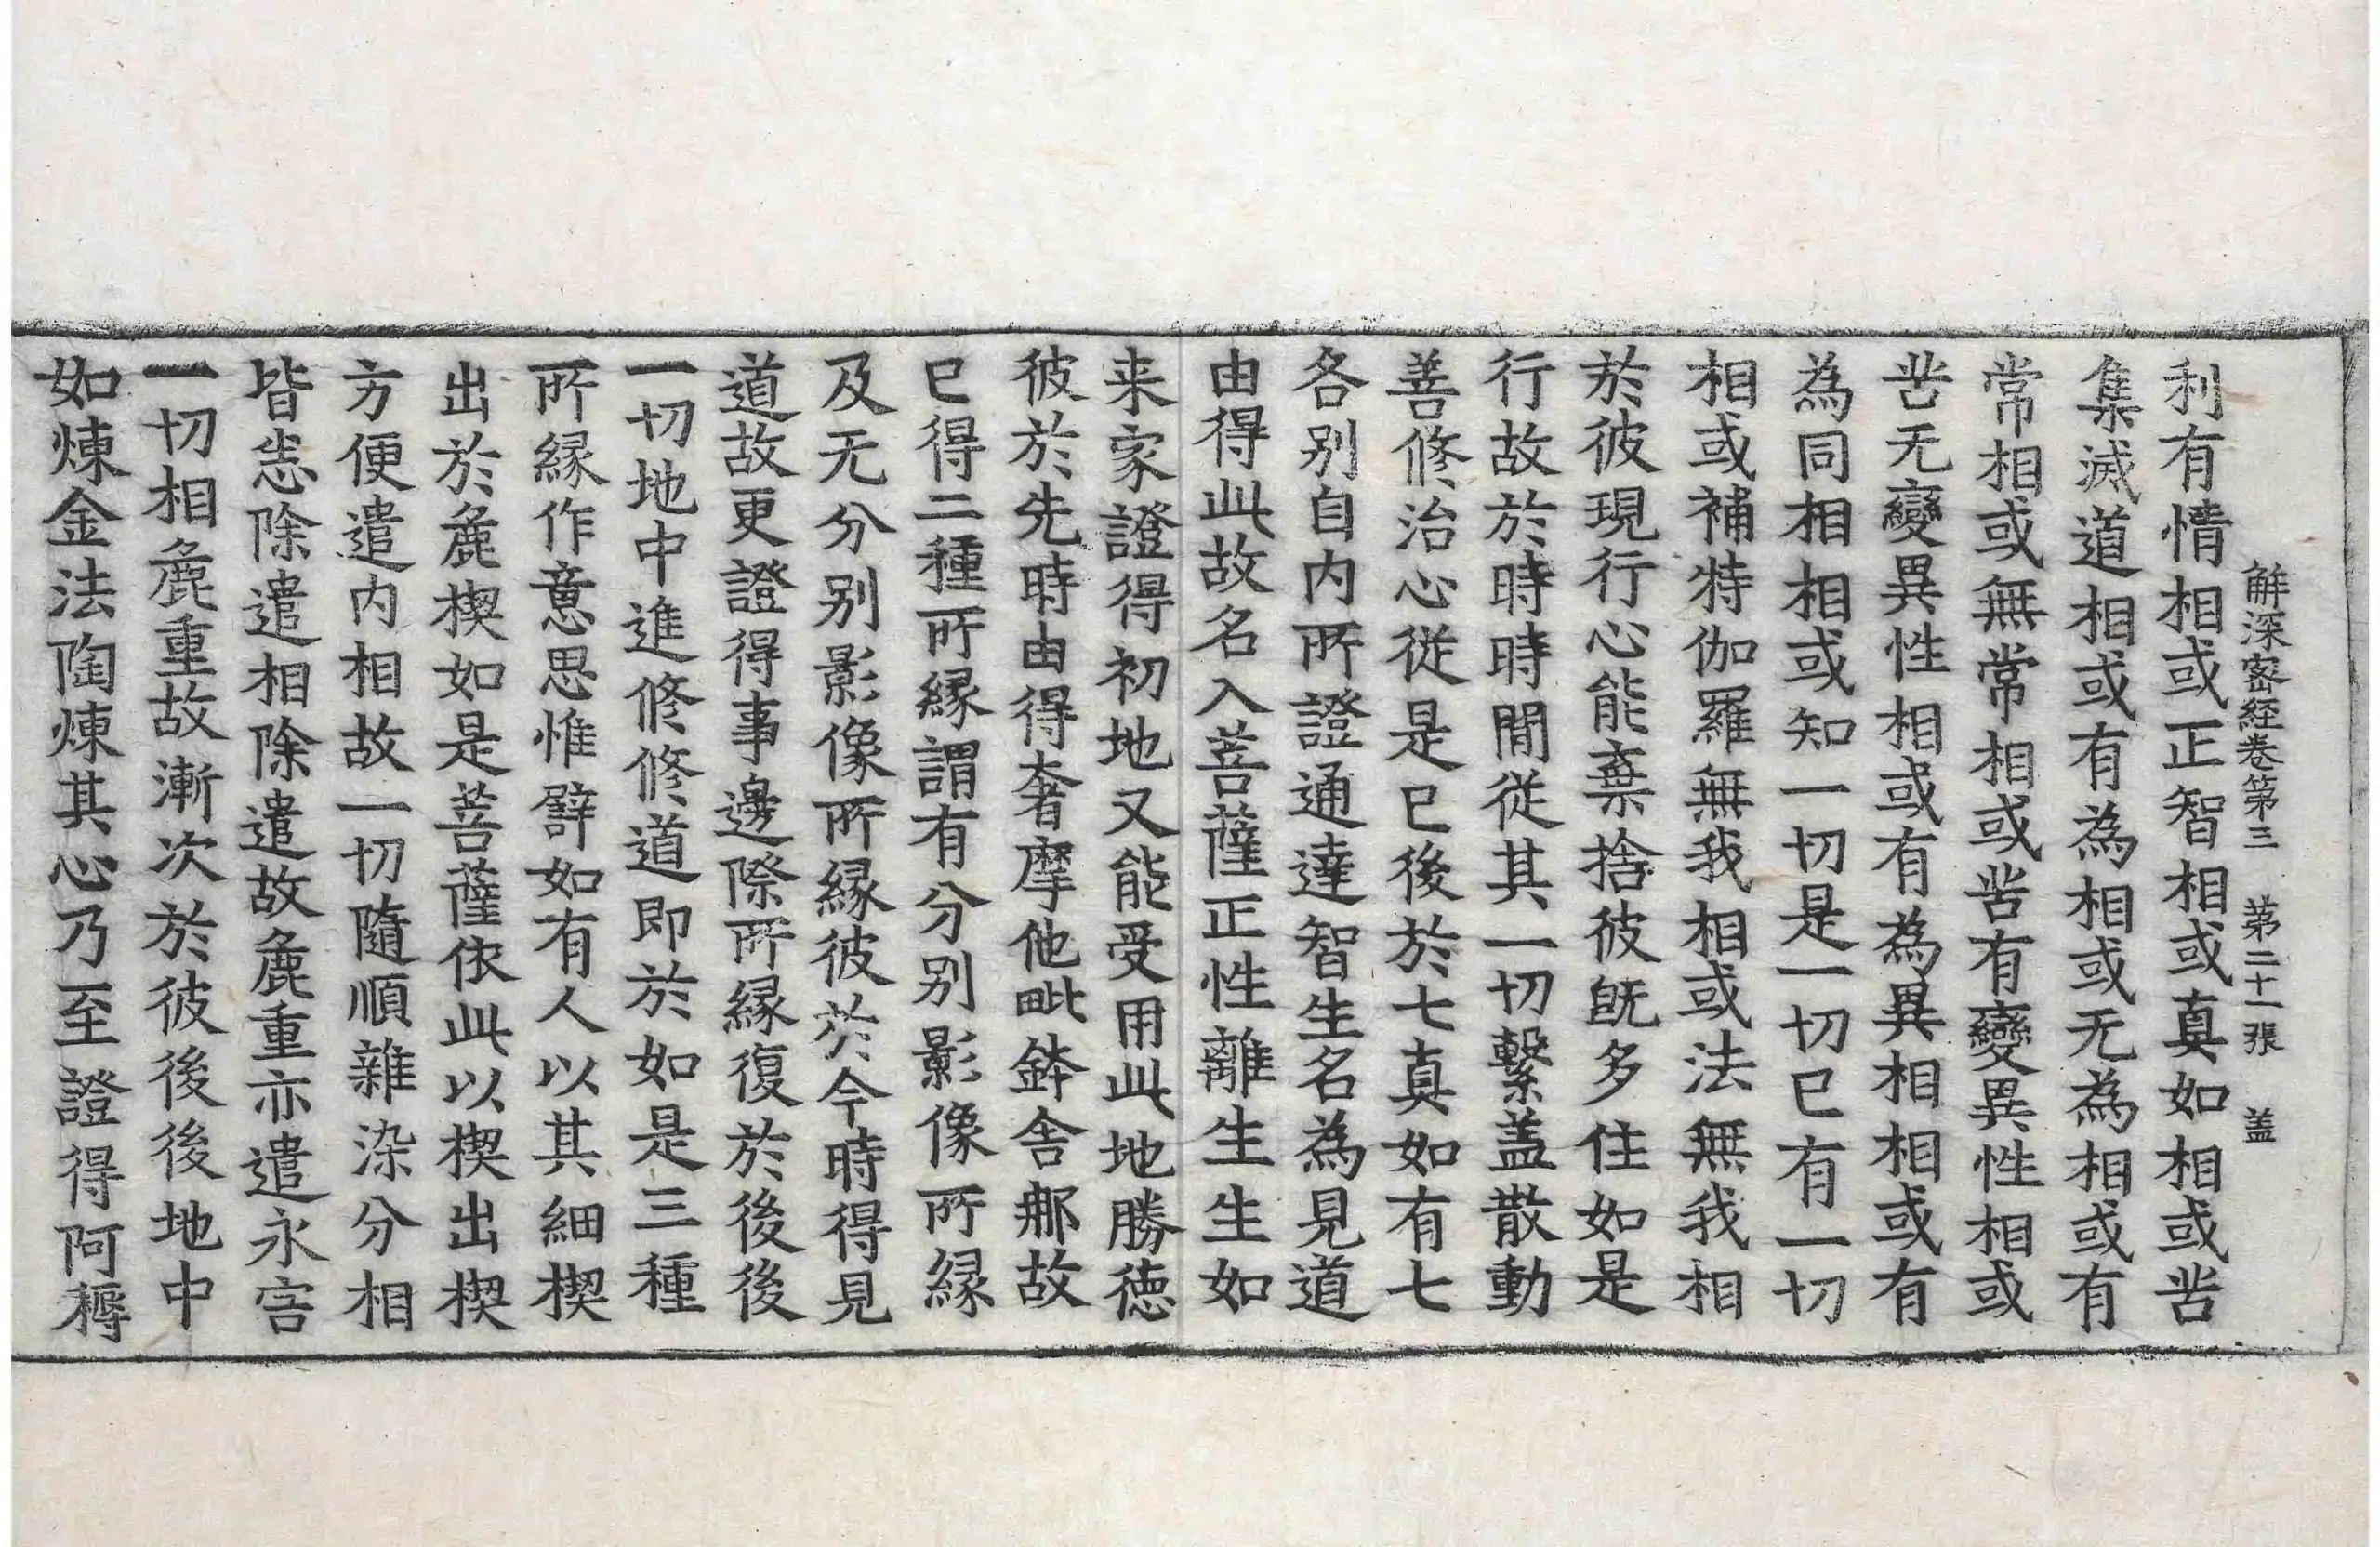 解深密經卷第三 第二十一張 盖
利有情相或正智相或真如相或苦
集滅道相或有為相或无為相或有
常相或無常相或苦有變異性相或
苦无變異性相或有為異相相或有
為同相相或知一切是一切已有一切
相或補特伽羅無我相或法無我相
於彼現行心能棄捨彼旣多住如是
行故於時時間從其一切繫盖散動
善修治心從是已後於七真如有七
各別自内所證通達智生名為見道
由得此故名入菩薩正性離生生如
来家證得初地又能受用此地勝德
彼於先時由得奢摩他毗鉢舍那故
已得二種所緣謂有分别影像所緣
及无分别影像所緣彼於今時得見
道故更證得事邊際所緣復於後後
一切地中進修修道即於如是三種
所緣作意思惟譬如有人以其細楔
出於麁楔如是菩薩依此以楔出楔
方便遣内相故一切隨順雜染分相
皆悉除遣相除遣故麁重亦遣永害
一切相麁重故漸次於彼後後地中
如煉金法陶煉其心乃至證得阿耨